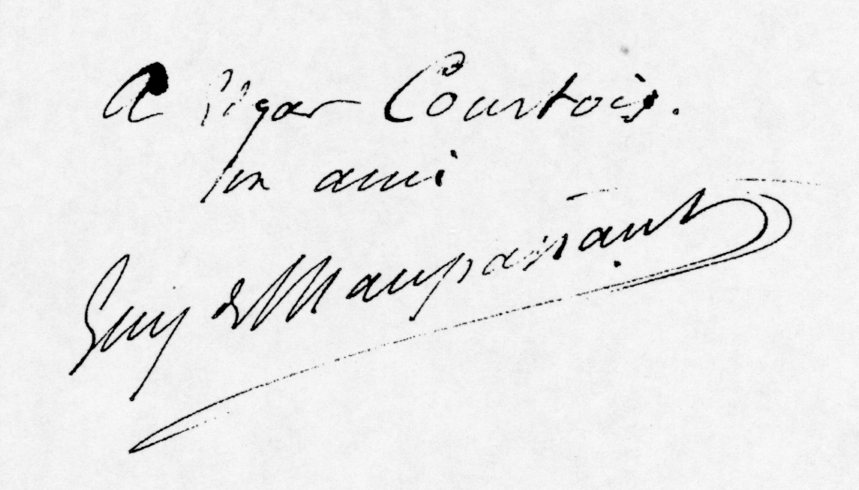 A Edgar Courtois.
son ami
Guy de Maupassant